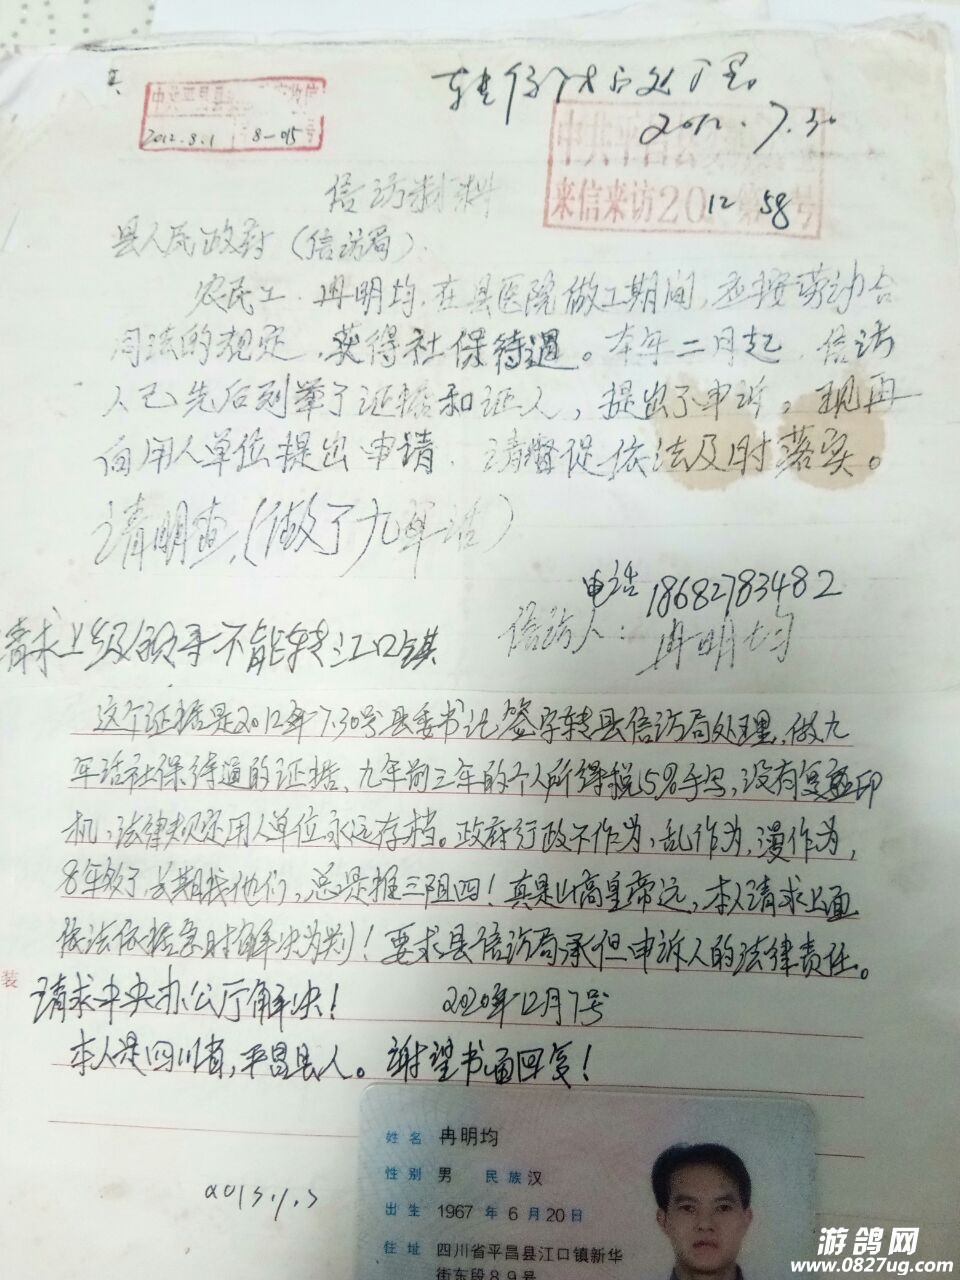 转信访局处理。
2012.7.30
中共平昌县
2012.8.1 8-015号
来信来访2012第58号
信访材料
县人民政府(信访局).
农民工.冉明均,在县医院做工期间,应按劳动合
同法的规定,获得社保待遇。本年二月起.信访
人已先后列举了证据和证人,提出了申诉,现再
向用人单位提出申请.请督促依法及时落实。
请明查,(做了九年活)
电话18682783482
信访人:冉明均
请求上级领导不能转江口镇
这个证据是2012年7.30号县委书记签字转县信访局处理,做九
年活社保待遇的证据,九年前三年的个人所得税5%手写,没有复印
机,法律规定用人单位永远存档。政府行政不作为,乱作为,漫作为,
8年多了长期找他们,总是推三阻四!真是山高皇帝远,本人请求上面
依法依据急时解决为盼!要求县信访局承但申诉人的法律责任。
装
请求中央办公厅解决! 2020年12月7号
本人是四川省,平昌县人。谢望书面回复!
2013.1.3
姓名 冉明均
性别 男 民族汉
出生 1967年6月20日
住址 四川省平昌县江口镇新华
街东段89号
游鸽网
www.0827ug.com